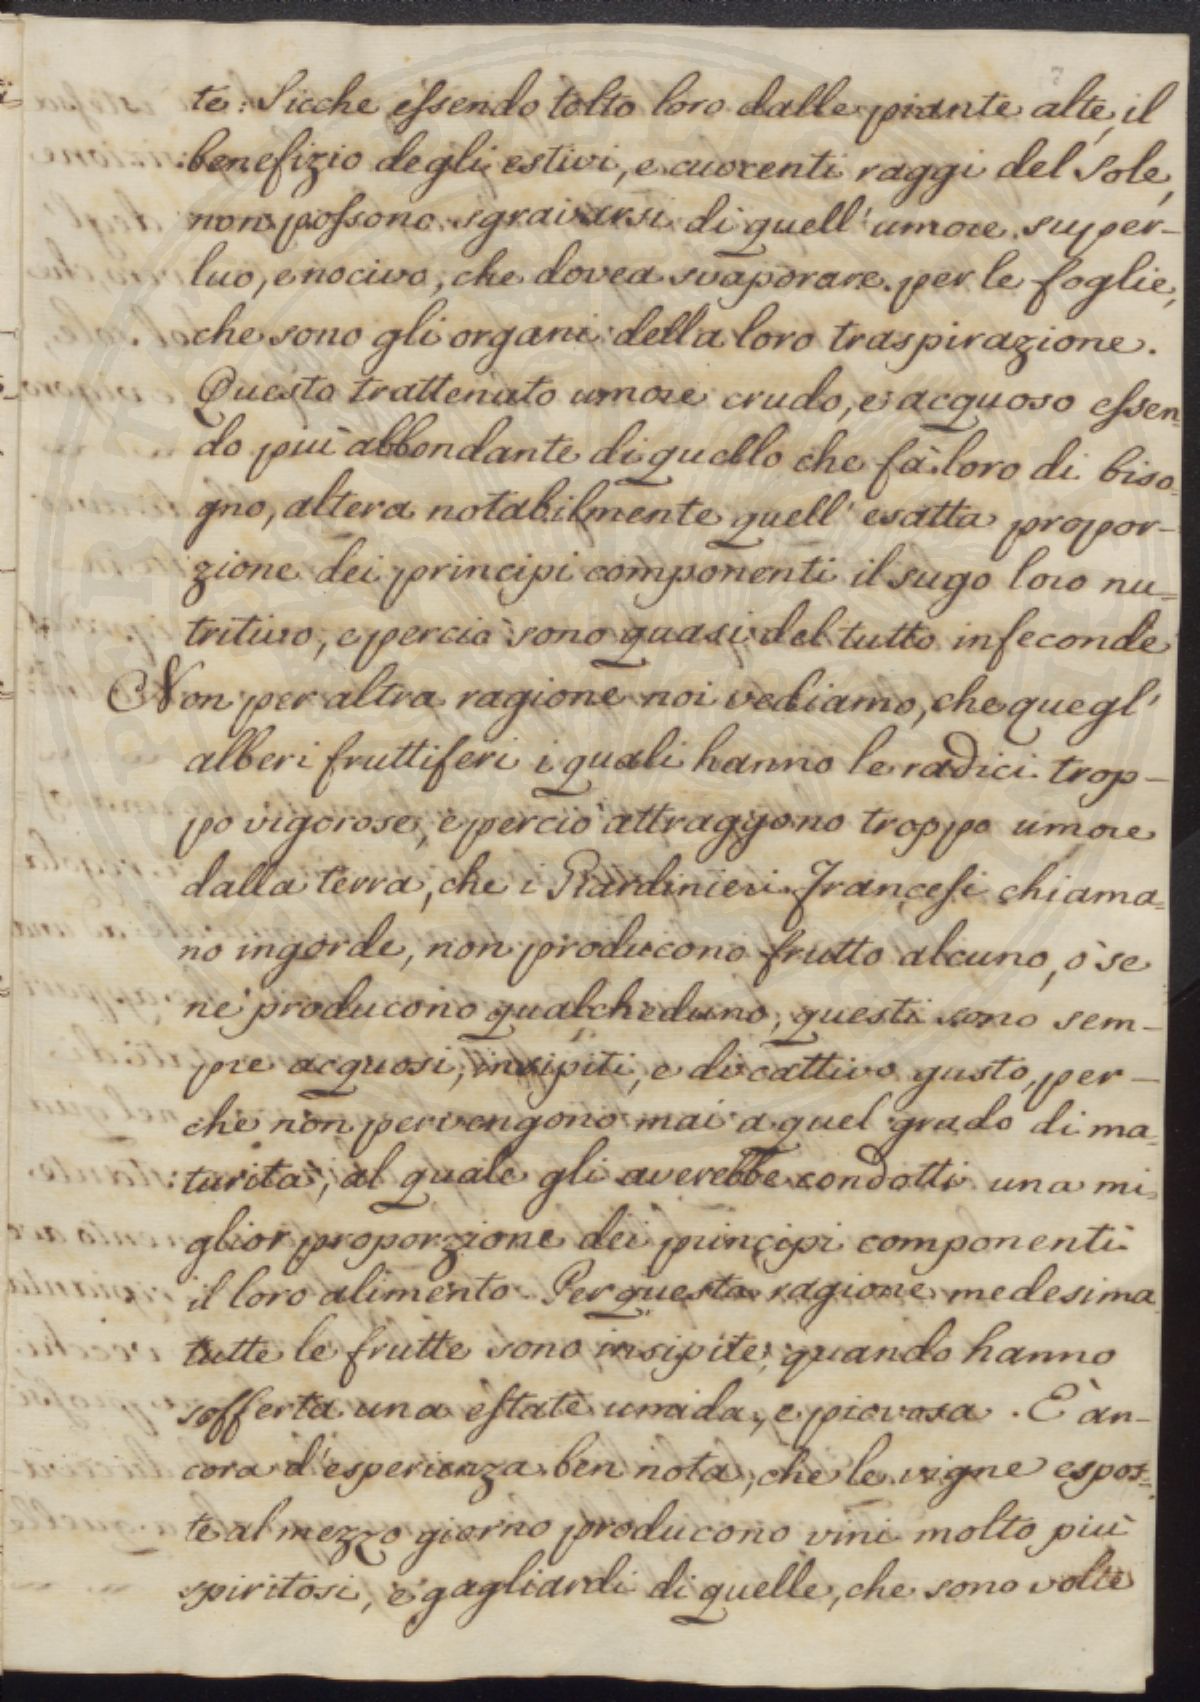 te: Sicche essendo tolto loro dalle piante alte, il
benefizio degli estivi, e cuocenti raggi del Sole,
non possono sgravarsi di quell' umore super-
luo, e nocivo, che dovea svaporare per le foglie,
che sono gli organi della loro traspirazione.
Questo trattenuto umore crudo, e acquoso essen=
do più abbondante di quello che fà loro di biso=
gno, altera notabilmente quell' esatta propor-
zione dei principi componenti il sugo loro nu=
tritivo, e perciò sono quasi del tutto infeconde
Non per altra ragione noi vediamo, che quegl'
alberi fruttiferi i quali hanno le radici trop-
po vigorose, e perciò attraggono troppo umore
dalla terra, che i Giardinieri Francesi chiama=
no ingorde, non producono frutto alcuno, ò se
ne producono qualcheduno, questi sono sem-
pre acquosi, insipiti, e di cattivo gusto, per-
che non pervengono mai a quel grado di ma=
turità, al quale gli averebbe condotti una mi=
glior proporzione dei principi componenti
il loro alimento. Per questa ragione medesima
tutte le frutte sono insipite, quando hanno
sofferta una estate umida, e piovosa. È an-
cora d'esperienza ben nota, che le vigne espos=
te al mezzo giorno producono vini molto più
spiritosi, e gagliardi di quelle, che sono volte